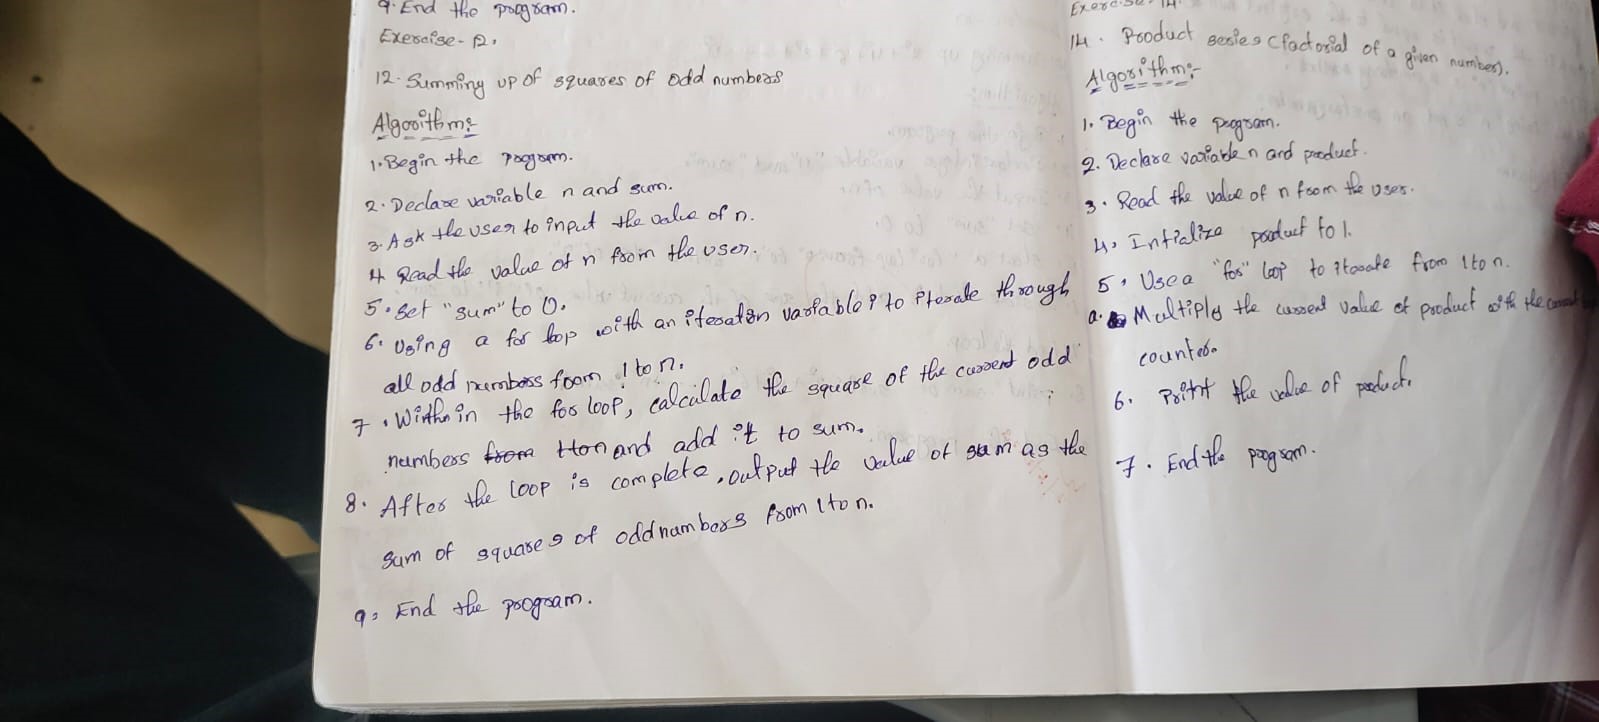 9. End the program.
Exercise - 12.
12. Summing up of squares of odd numbers
Algorithm:
1. Begin the program.
2. Declare variable n and sum.
3. Ask the user to input the value of n.
4 Read the value of n from the user.
5. Set "sum" to 0.
6. Using a for loop with an iteration variable i to iterate through
all odd numbers from 1 to n.
7. Within in the for loop, calculate the square of the current odd
numbers from 1 to n and add it to sum.
8. After the loop is complete, output the value of sum as the
Sum of squares of odd numbers from 1 to n.
9. End the program.
Exercise - 14.
14. Product series (factorial of a given number).
Algorithm:-
1. Begin the program.
2. Declare variable n and product.
3. Read the value of n from the user.
4. Intialize product to 1.
5. Use a "for" loop to iterate from 1 to n.
a. Multiply the current value of product with the
counter.
6. Print the value of product.
7. End the program.